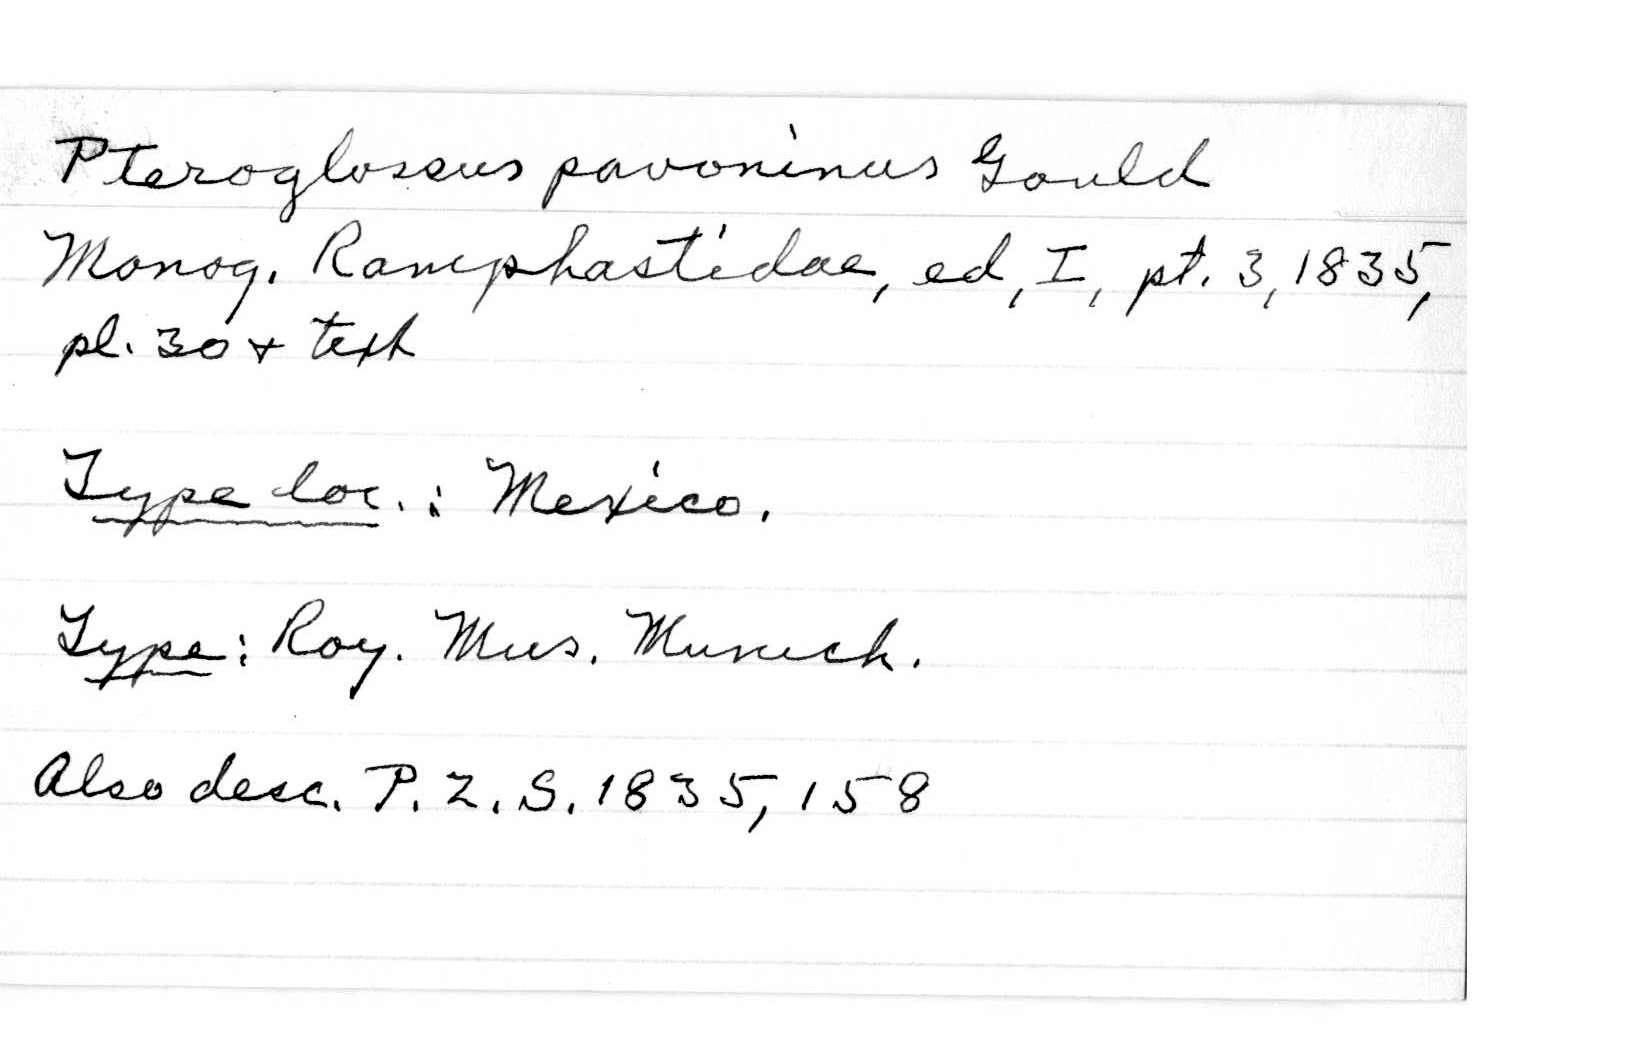 Pteroglossus pavoninus Gould
Monog. Ramphastidae, ed, I, pt. 3, 1835,
pl. 30 + text
Type loc.: Mexico.
Type: Roy. Mus. Munich.
Also desc. P. Z. S. 1835, 158